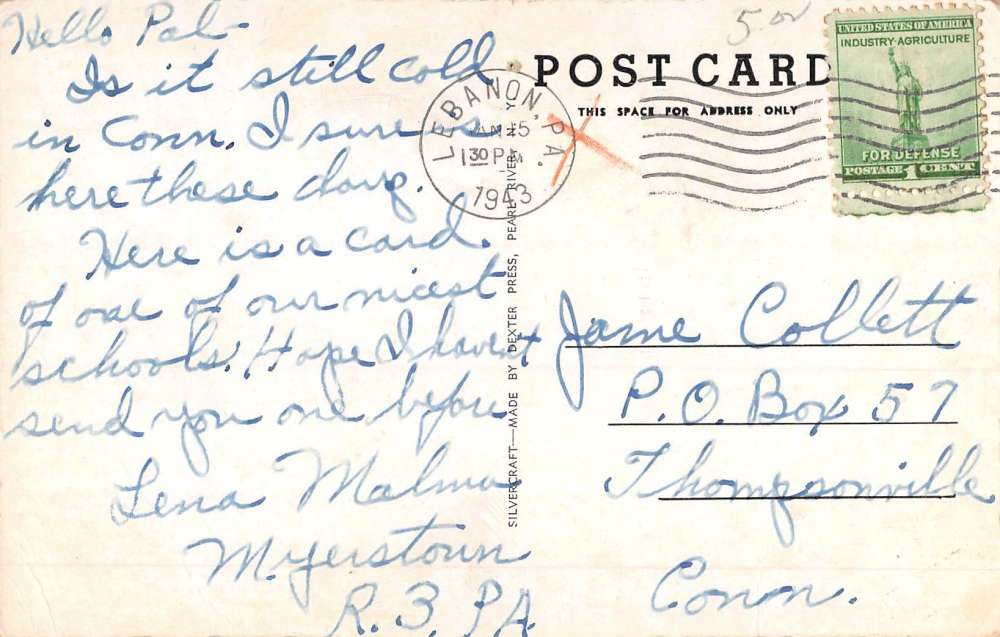 Hello Pal-
Is it still cold
in Conn. I sure is
here these days.
Here is a card
of one of our nicest
schools. Hope I havent
send you one before
Lena Malma
Myerstown
R. 3, PA.
5.00
POST CARD
THIS SPACE FOR ADDRESS ONLY
LEBANON, PA.
JAN 15
1 30 PM
1943
UNITED STATES OF AMERICA
INDUSTRY·AGRICULTURE
FOR DEFENSE
POSTAGE 1 CENT
SILVERCRAFT—MADE BY DEXTER PRESS, PEARL RIVER, N. Y.
Jame Collett
P.O. Box 57
Thompsonville
Conn.